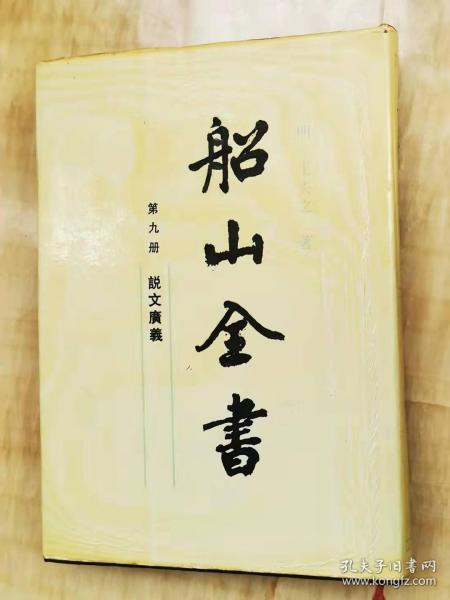 明 王夫之 著
船山全書
第九册 説文廣義
孔夫子旧书网